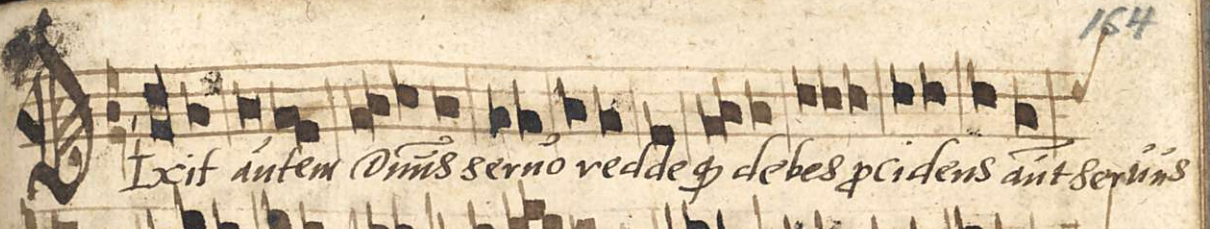 164
DIxit autem Dñus seruo redde ꝙ debes ꝓcidens aūt seruus